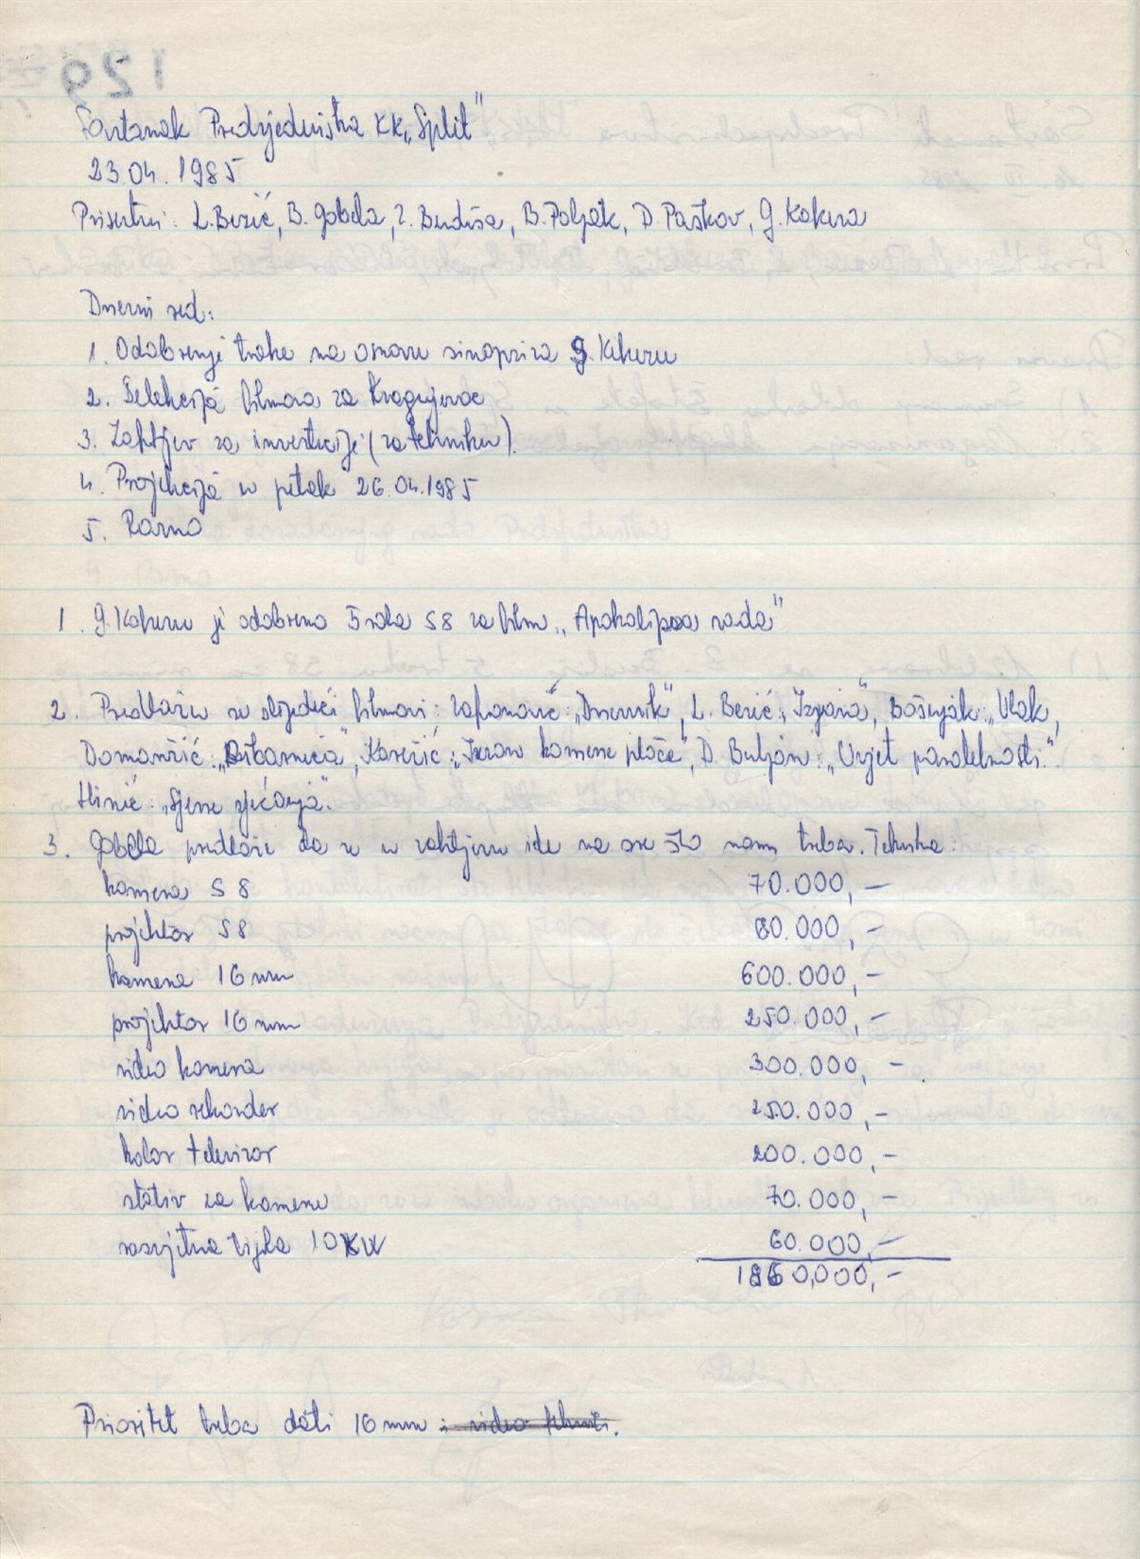 Sastanak Predsjedništva KK "Split"
23.04.1985
Prisutni: L. Bezić, B. Gabela, Z. Budiša, B. Poljak, D. Paškov, G. Kakura
Dnevni red:
1. Odobrenje trake na osnovu sinopsisa G. Kakuru
2. Selekcija filmova za Kragujevac
3. Zahtjev za investicije (za tehniku).
4. Projekcija u petak 26.04.1985
5. Razno
1. G. Kakuru je odobreno 5 rola S8 za film „Apokalipsa rada"
2. Predlažu se slijedeći filmovi: „Dnevnik", L. Bezić: Bošnjak: „Vlak",
Domančić: „Ribarnica", kamene ploče", D. Buljan: „Uvjet paralelnosti".
„Sjene sjećanja".
3. Gabela predlaže da se u zahtjevu ide na sve što nam treba. Tehnika:
kamera S 8 70.000,—
projektor S8 80.000,—
kamera 16 mm 600.000,—
projektor 16 mm 250.000,—
video kamera 300.000,—
video rekorder 250.000,—
kolor televizor 200.000,—
stativ za kameru 70.000,—
rasvjetna tijela 10 KW 60.000,—
1860,000,—
Prioritet treba dati 16 mm i video tehnici.